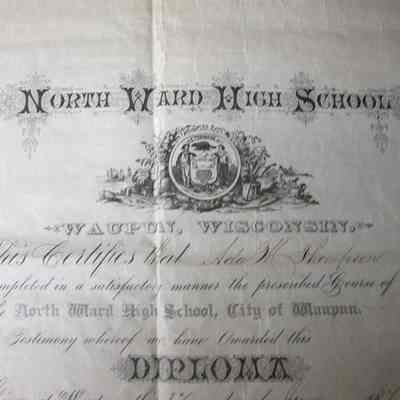 North Ward High School
Waupun, Wisconsin.
This Certifies that Ada W Thompson
completed in a satisfactory manner the prescribed Course of
North Ward High School, City of Waupun.
Testimony whereof we have Awarded this
DIPLOMA